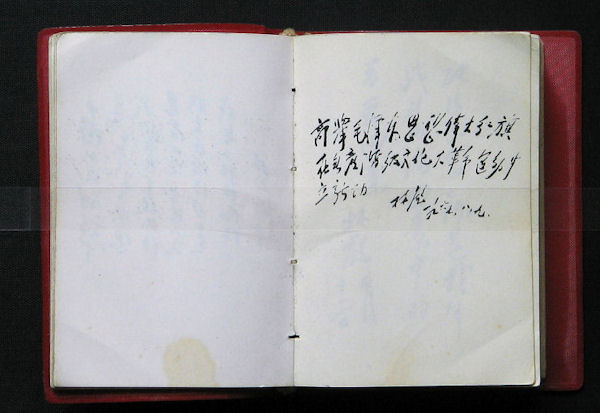 高举毛泽东思想伟大红旗
在无产阶级文化大革命运动中
立新功
林彪